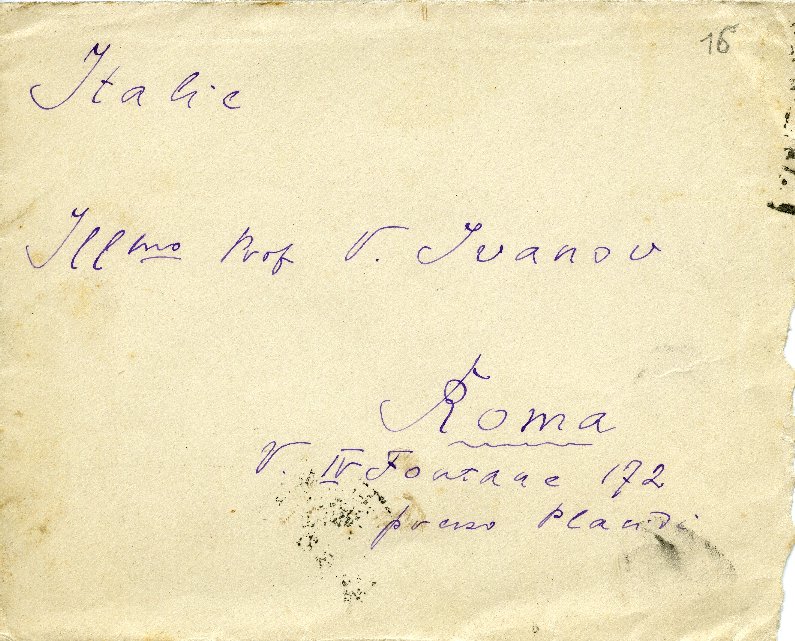 16
Italie
Ill^mo Prof V. Ivanov
Roma
V. IV Fontane 172
presso Placidi